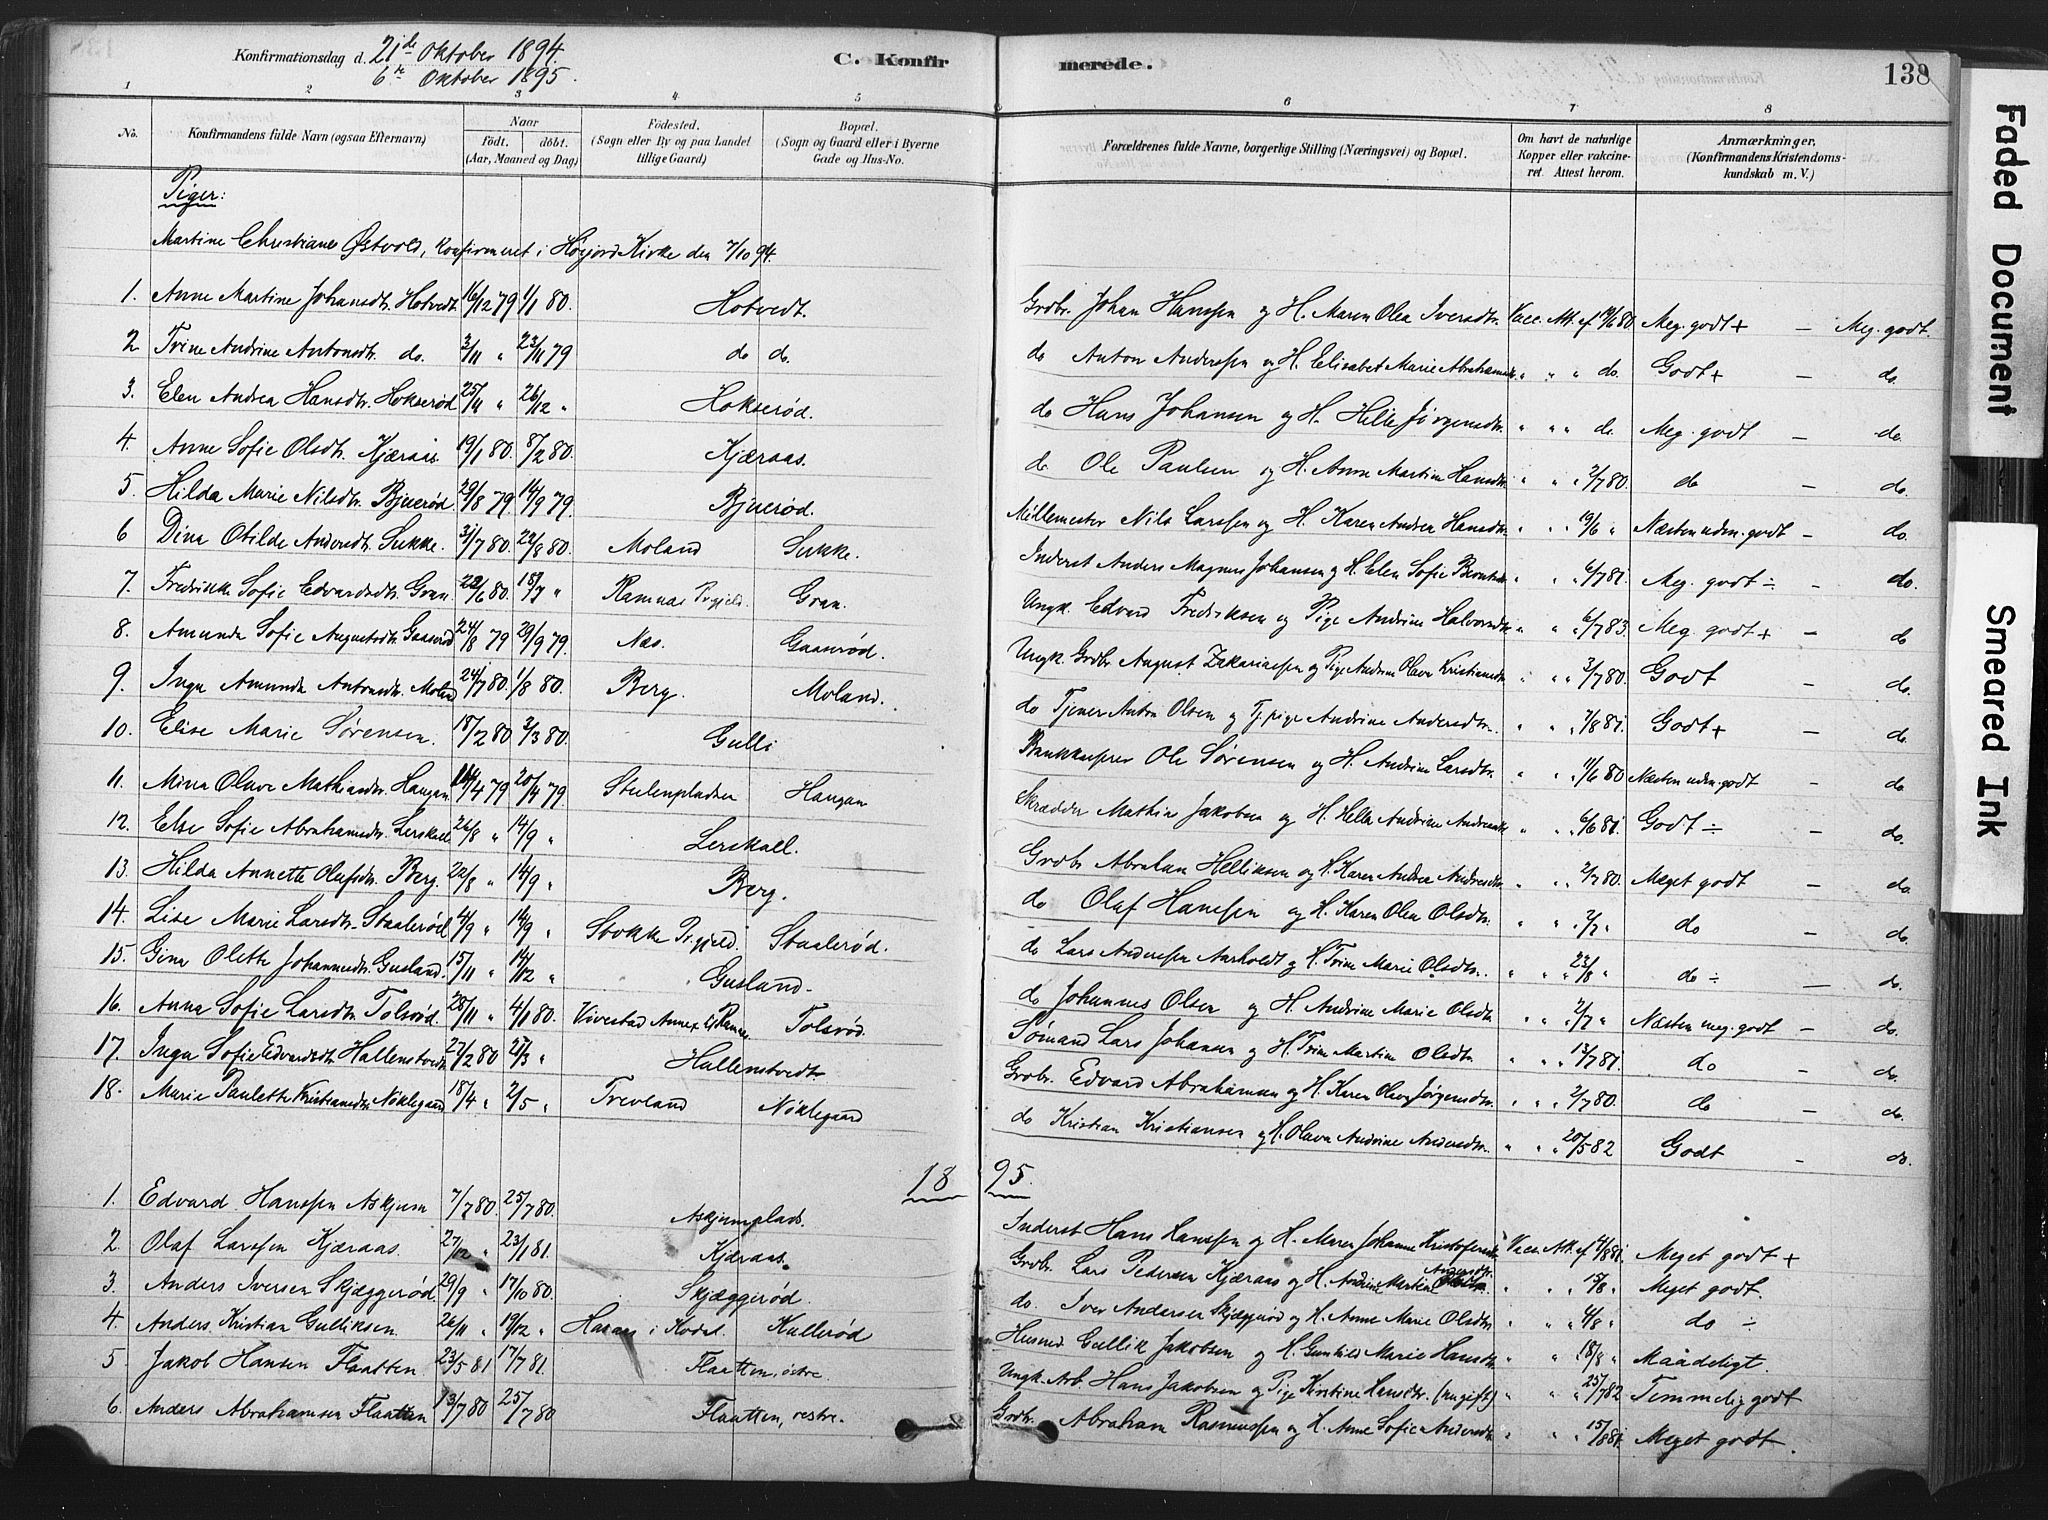 Konfirmationsdag d. 21de Oktober 1894.
6te Oktober 1895.
C. Konfirmerede.
138
1 2 3 4 5 6 7 8
No.
Konfirmandens fulde Navn (ogsaa Efternavn)
Naar
født. døbt.
(Aar, Maaned og Dag)
Fødested.
(Sogn eller By og paa Landet
tillige Gaard)
Bopæl.
(Sogn og Gaard eller i Byerne
Gade og Hus-No.
Forældrenes fulde Navne, borgerlige Stilling (Næringsvei) og Bopæl.
Om havt de naturlige
Kopper eller vakcine-
ret. Attest herom.
Anmærkninger.
(Konfirmandens Kristendoms-
kundskab m. V.)
Piger:
Martine Christiane Østvold, konfirmeret i Høijord Kirke den 7/10 94.
1. Anne Martine Johansdtr. Hotvedt 16/12 79 1/1 80. Hotvedt. Grdbr. Johan Hanssen og H. Maren Olea Iversdtr. Vacc. Att. af 19/6 80 Meg. godt + — Meg. godt.
2 Trine Andrine Antonsdtr. do. 3/11 " 23/11 79 do do. do Anton Anderssen og H. Elisabet Marie Abrahamsdtr. " " " do. Godt + — do.
3. Elen Andrea Hansdtr. Hokserød 25/11 " 26/12 " Hokserød. do Hans Johansen og H. Helle Jørgensdtr. " " " do. Meg. godt — do.
4. Anne Sofie Olsdtr. Kjæraas 19/1 80. 8/2 80. Kjæraas. do Ole Paulsen og H. Anne Martine Hansdtr. " " " 2/7 80. do — do.
5. Hilda Marie Nilsdtr. Bjuerød 29/8 79 14/9 79. Bjuerød. Møllemester Nils Larssen og H. Karen Andrea Hansdtr. " " " 19/6 " Næsten udm. godt — do.
6 Dina Otilde Andersdtr. Sukke. 31/7 80. 22/8 80. Moland Sukke. Inderst Anders Magnus Johansen og H. Elen Sofie Berntsdtr. " " " 6/7 81. Meg. godt ÷ — do.
7. Fredrikke Sofie Edvardsdtr. Gran. 22/6 80. 15/7 " Ramnæs Prgjeld. Gran. Ungk. Edvard Fredriksen og Pige Andrine Halvorsdtr. " " " 6/7 83. Meg. godt + — do
8. Amunda Sofie Augustsdtr. Gaasrød 24/8 79 29/9 79. Næs. Gaasrød. Ungk. Grdbr August Zakariassen og Pige Andrine Olava Kristiansdtr. " " " 3/7 80. Godt — do.
9. Inga Amunda Antonsdtr. Moland 24/7 80. 1/8 80. Berg. Moland. do Tjener Anton Olsen og Tj.pige Andrine Andersdtr. " " " 7/8 81. Godt + — do.
10. Elise Marie Sørensen. 18/2 80 3/3 80. Gulli Ole Sørensen og H. Andrine Larsdtr. " " " 11/6 80 Næsten udm. godt — do
11. Mina Olave Mathiasdtr. Haugan 14/4 79 20/4 79 Stulenpladsen Haugan Skrædder Mathias Jakobsen og H. Helle Andrine Andreasdtr. " " " 6/6 81. Godt ÷ — do.
12. Else Sofie Abrahamsdtr. Lerskall 26/8 " 14/9 " Lerskall. Grdbr Abraham Helliksen og H. Karen Andrea Andresdtr. " " " 2/7 80. Meget godt — do.
13. Hilda Annette Olafsdtr. Berg. 22/8 " 14/9 " Berg. do Olaf Hanssen og H. Karen Olea Olsdtr. " " " 2/7 " do — do.
14. Lise Marie Larsdtr. Staalerød 4/9 " 14/9 " Stokke Prgjeld. Staalerød. do Lars Anderssen Aarholdt og H. Trine Marie Olsdtr. " " " 23/8 " do ÷ — do.
15. Gina Olette Johannesdtr. Gusland. 15/11 " 14/12 " Gusland. do Johannes Olsen og H. Andrine Marie Olsdtr. " " " 2/7 " Næsten meg. godt — do.
16. Anna Sofie Larsdtr. Tolsrød. 28/11 " 4/1 80. Vivestad Annex til Ramnes Tolsrød. Sømand Lars Johansen og H. Trine Martine Olsdtr. " " " 13/7 81. do — do.
17. Inga Sofie Edvardsdtr. Hallenstvedt 27/2 80 27/3 " Hallenstvedt Grdbr. Edvard Abrahamsen og H. Karen Olava Jørgensdtr. " " " 2/7 80. do — do.
18. Marie Paulette Kristiansdtr. Nøklegaard 18/4 " 2/5 " Trevland Nøklegaard do Kristian Kristiansen og H. Olava Andrine Andersdtr. " " " 20/5 82 Godt — do.
18 95.
1. Edvard Hanssen Askjum 7/7 80. 25/7 80. Askjumplads. Inderst Hans Hanssen og H. Maren Johanne Kristofersdtr. Vacc. Att. af 14/8 81. Meget godt +
2. Olaf Larssen Kjæraas. 27/12 " 23/1 81. Kjæraas. Grdbr. Lars Pedersen Kjæraas og H. Andrine Martine Andersdtr. " " 15/8 " Meget godt.
3. Anders Iversen Skjæggerød. 29/9 " 17/10 80. Skjæggerød do. Iver Andersen Skjæggerød og H. Anne Marie Olsdtr. " " 4/8 " do ÷
4. Anders Kristian Gulliksen. 26/11 " 19/12 " Haraas i Kodal. Kullerød Husmd Gullik Jakobsen og H. Gunhild Marie Hansdtr. " " 18/8 " Maadeligt
5 Jakob Hansen Flaatten 23/5 81 17/7 81. Flaatten, østre. Ungk. Arb. Hans Jakobsen og Pige Kirstine Hansdtr. (nu gift) " " 25/7 82 Temmelig godt
6. Anders Abrahamsen Flaatten 13/7 80 25/7 80 Flaatten, vestre. Grdbr. Abraham Rasmussen og H. Anne Sofie Andersdtr. " " 15/8 81. Meget godt.
Faded Document
Smeared Ink